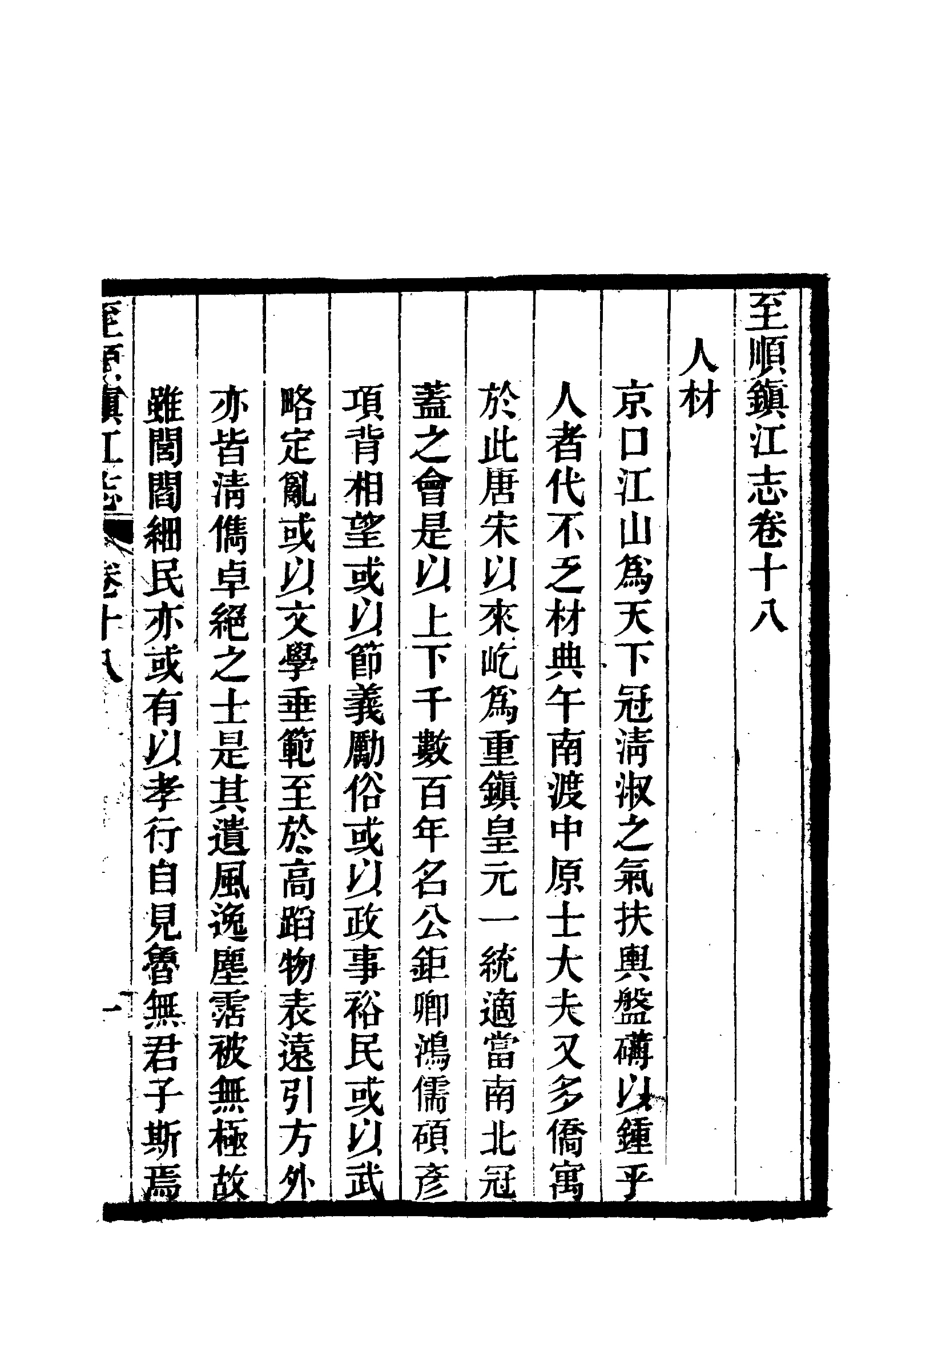 至順鎮江志卷十八
人材
京口江山爲天下冠淸淑之氣扶輿盤礴以鍾乎
人者代不乏材典午南渡中原士大夫又多僑寓
於此唐宋以來屹爲重鎮皇元一統適當南北冠
蓋之會是以上下千數百年名公鉅卿鴻儒碩彥
項背相望或以節義勵俗或以政事裕民或以武
略定亂或以文學垂範至於高蹈物表遠引方外
亦皆淸儁卓絕之士是其遺風逸塵霑被無極故
雖閭閻細民亦或有以孝行自見魯無君子斯焉
至順鎮江志 卷十八 一